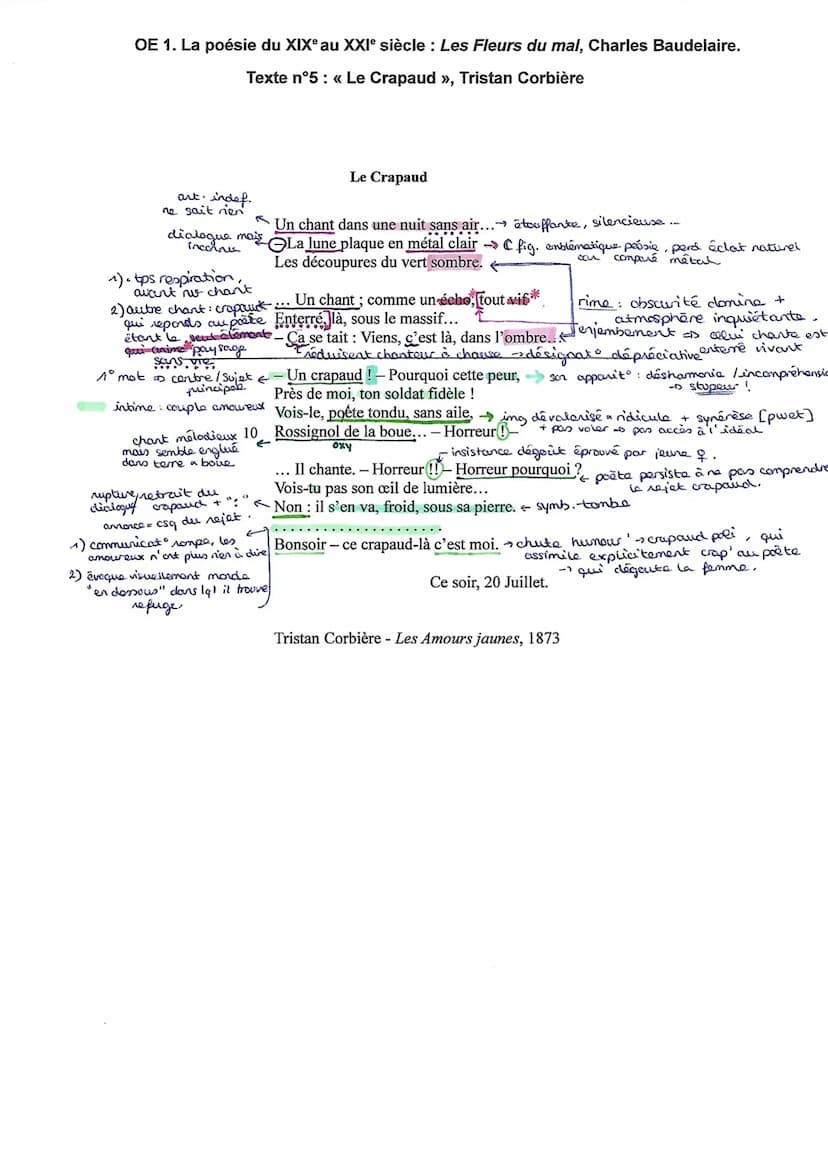 OE 1. La poésie du XIXe au XXIe siècle : Les Fleurs du mal, Charles Baudelaire.
Texte n°5 : « Le Crapaud », Tristan Corbière
Le Crapaud
art. indéf.
ne sait rien
Un chant dans une nuit sans air… → étouffante, silencieuse ...
dialogue mais
inconnu
– La lune plaque en métal clair → fig. emblématique poésie, perd éclat naturel
car comparé métal
Les découpures du vert sombre.
1) • tps respiration,
avant nv chant
2) autre chant : crapaud
qui répond au poète
étant le seul élément
qui anime paysage
sans vie
… Un chant ; comme un écho, tout vif*
Enterré, là, sous le massif…
– Ça se tait : Viens, c'est là, dans l'ombre…
rime : obscurité domine +
atmosphère inquiétante.
enjambement => celui chante est
enterré vivant
réduisent chanteur à chose → désignat° dépréciative
1° mot => centre/sujet
principal
– Un crapaud ! – Pourquoi cette peur, → son apparit° : désharmonie / incompréhension
→ stupeur !
Près de moi, ton soldat fidèle !
intime : couple amoureux
Vois-le, poète tondu, sans aile, → img dévalorisé = ridicule + synérèse [pwet]
+ pas voler => pas accès à l'idéal
chant mélodieux
mais semble englué
dans terre = boue
10 Rossignol de la boue… – Horreur ! –
oxy
insistance dégoût éprouvé par jeune ♀.
… Il chante. – Horreur !! – Horreur pourquoi ?
poète persiste à ne pas comprendre
le rejet crapaud.
Vois-tu pas son œil de lumière…
rupture, retrait du
dialogue crapaud + ":"
annonce = csq du rejet.
Non : il s'en va, froid, sous sa pierre. ← symb. tombe
. . . . . . . . . . . . . . . . . . . . .
1) communicat° rompe, les
amoureux n'ont plus rien à dire
2) évoque visuellement monde
"en dessous" dans lql il trouve
refuge.
Bonsoir – ce crapaud-là c'est moi. → chute humour' → crapaud poli, qui
assimile explicitement crap' au poète
→ qui dégoute la femme.
Ce soir, 20 Juillet.
Tristan Corbière - Les Amours jaunes, 1873